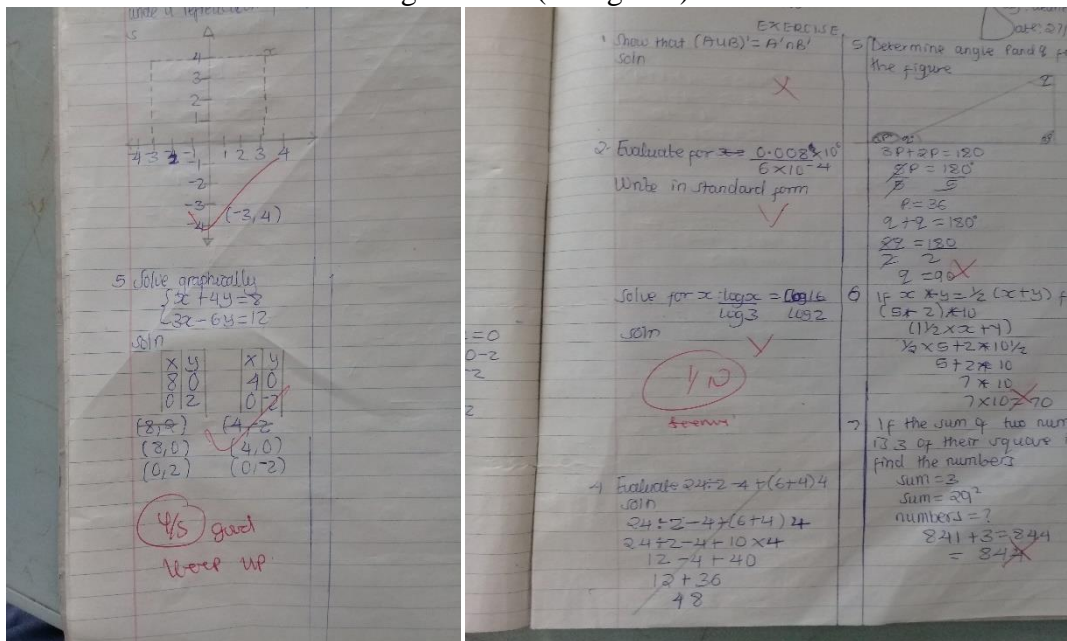 S
4
3
2
1
-4 -3 -2 -1 1 2 3 4
-1
-2
-3
-4
(-3,4)
5 Solve graphically
x + 4y = 8
3x - 6y = 12
soln
x y
8 0
0 2
x y
4 0
0 -2
(8,0) (4,0)
(0,2) (0,-2)
4/5 good
keep up
EXERCISE
Date: 27/
1 Show that (AUB)' = A'nB'
soln
2 Evaluate for 0.008 x 10
6 x 10-4
Write in standard form
Solve for x logx = log16
log3 log2
soln
1/10
4 Evaluate 24÷2-4+(6+4)4
soln
24÷2-4+(6+4)4
24÷2-4+10x4
12-4+40
12+36
48
=0
0-2
-2
2
5 Determine angle P and q
the figure
3P+2P=180
5P=180°
5 5
P=36
q+q=180°
2q=180
2 2
q=90
6 If x * y = 1/2 (x+y)
(5*2)*10
(1/2 x x + y)
1/2 x 5+2*10 1/2
5+2*10
7*10
7x10=70
7 If the sum of two num
is 3 of their square
find the numbers
sum=3
sum=29²
numbers=?
841+3=844
=844